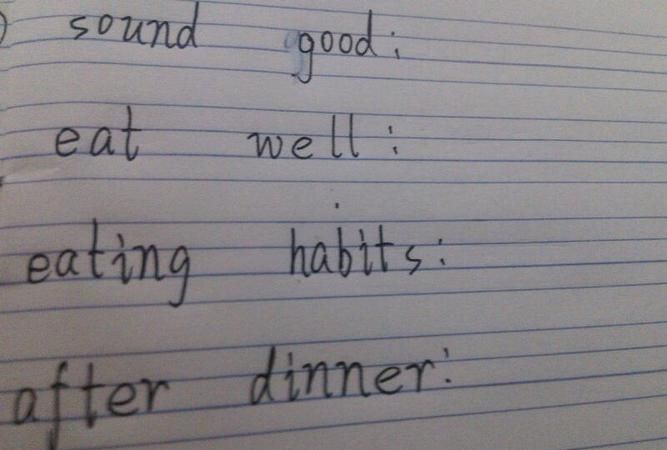 sound good:
eat well:
eating habits:
after dinner: